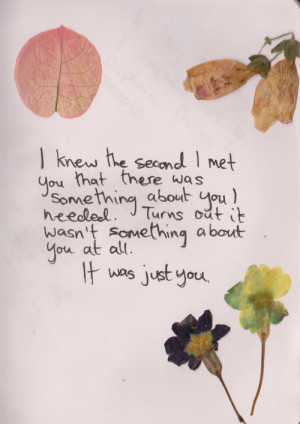 I knew the second I met
you that there was
something about you I
needed. Turns out it
wasn't something about
you at all.
It was just you.